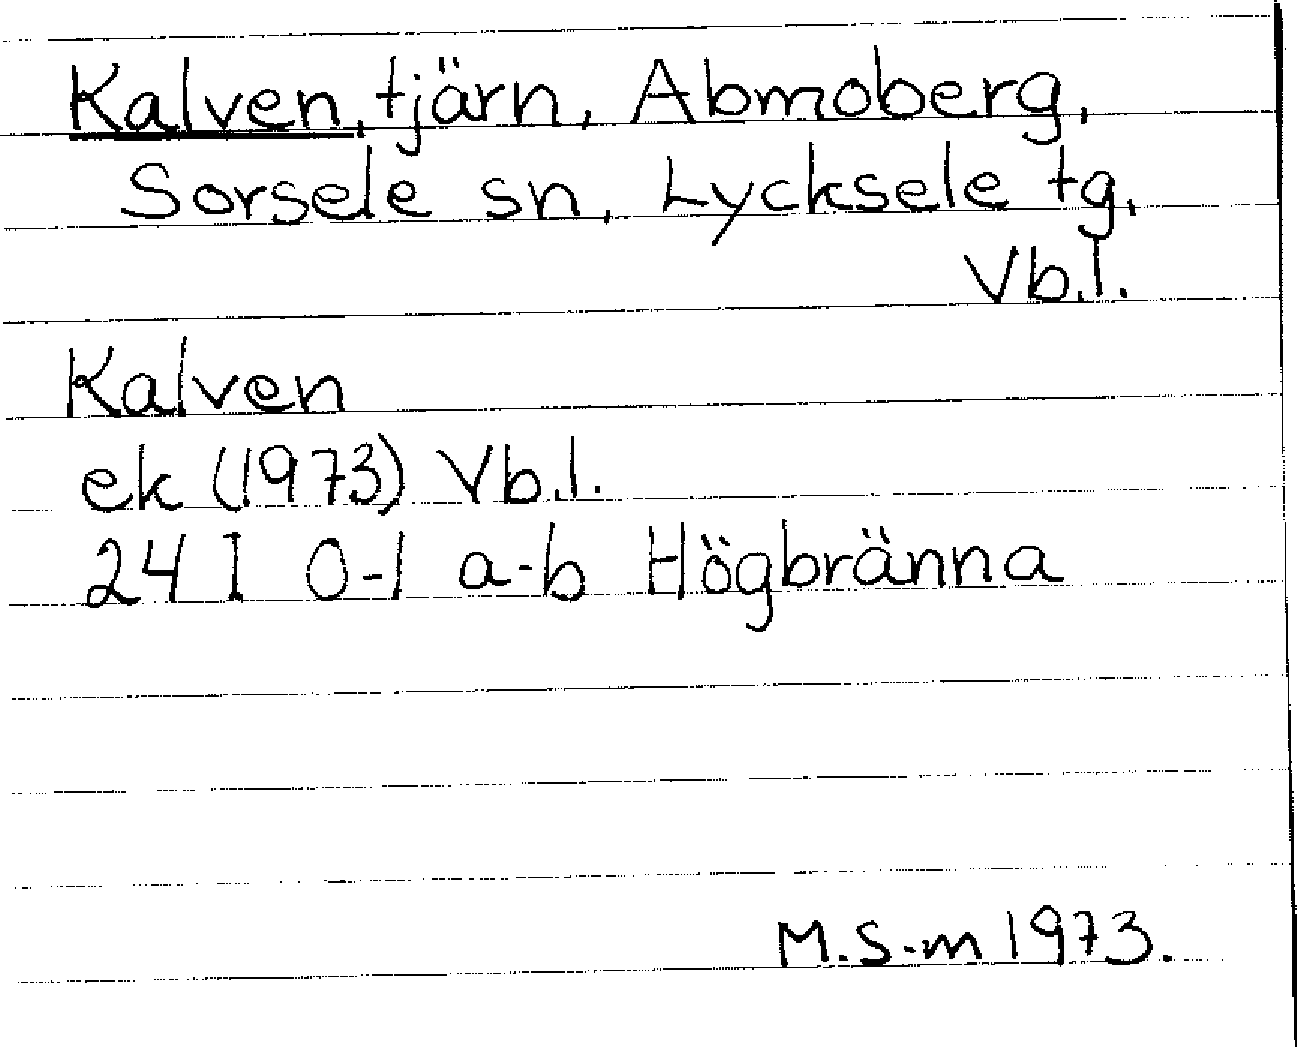 Kalven, tjärn, Abmoberg,
Sorsele sn, Lycksele tg,
Vb.l.
Kalven
ek (1973) Vb.l.
24 I 0-1 a-b Högbränna
M.S-m 1973.